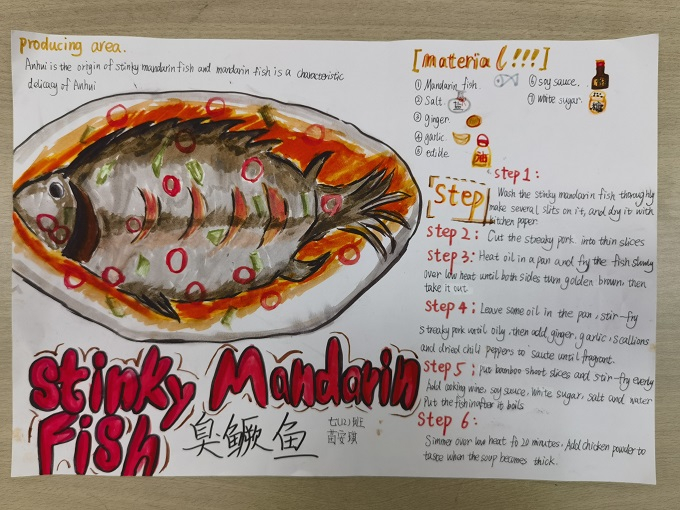 producing area.
Anhui is the origin of stinky mandarin fish and mandarin fish is a characteristic
delicacy of Anhui
[material!!!]
① Mandarin fish.
② Salt.
盐
③ ginger.
④ garlic.
⑤ edible.
油
⑥ soy sauce.
⑦ white sugar.
[Step]
step 1:
Wash the stinky mandarin fish thoroughly
make several slits on it, and dry it with
kitchen paper.
step 2: Cut the streaky pork into thin slices
step 3: Heat oil in a pan and fry the fish slowly
over low heat until both sides turn golden brown, then
take it out
Step 4: Leave some oil in the pan, stir-fry
streaky pork until oily, then add ginger, garlic, scallions
and dried chili peppers to saute until fragrant.
step 5: put bamboo shoot slices and stir-fry evenly
Add cooking wine, soy sauce, white sugar, salt and water
Put the fish in after it boils
Step 6:
Simmer over low heat fo 20 minutes. Add chicken powder to
taste when the soup becomes thick.
Stinky Mandarin
Fish
臭鳜鱼